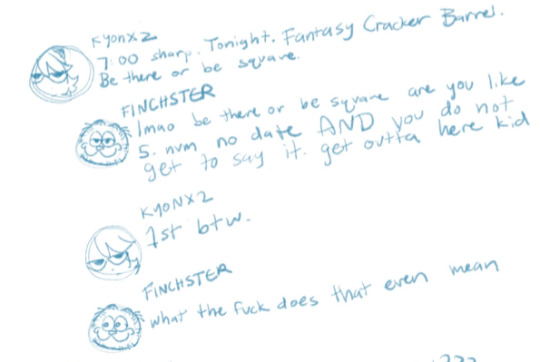 Kyonx2
7:00 sharp. Tonight. Fantasy Cracker Barrel.
Be there or be square.
FINCHSTER
lmao be there or be square are you like
5. nvm no date AND you do not
get to say it. get outta here kid
KYONX2
1st btw.
FINCHSTER
what the fuck does that even mean